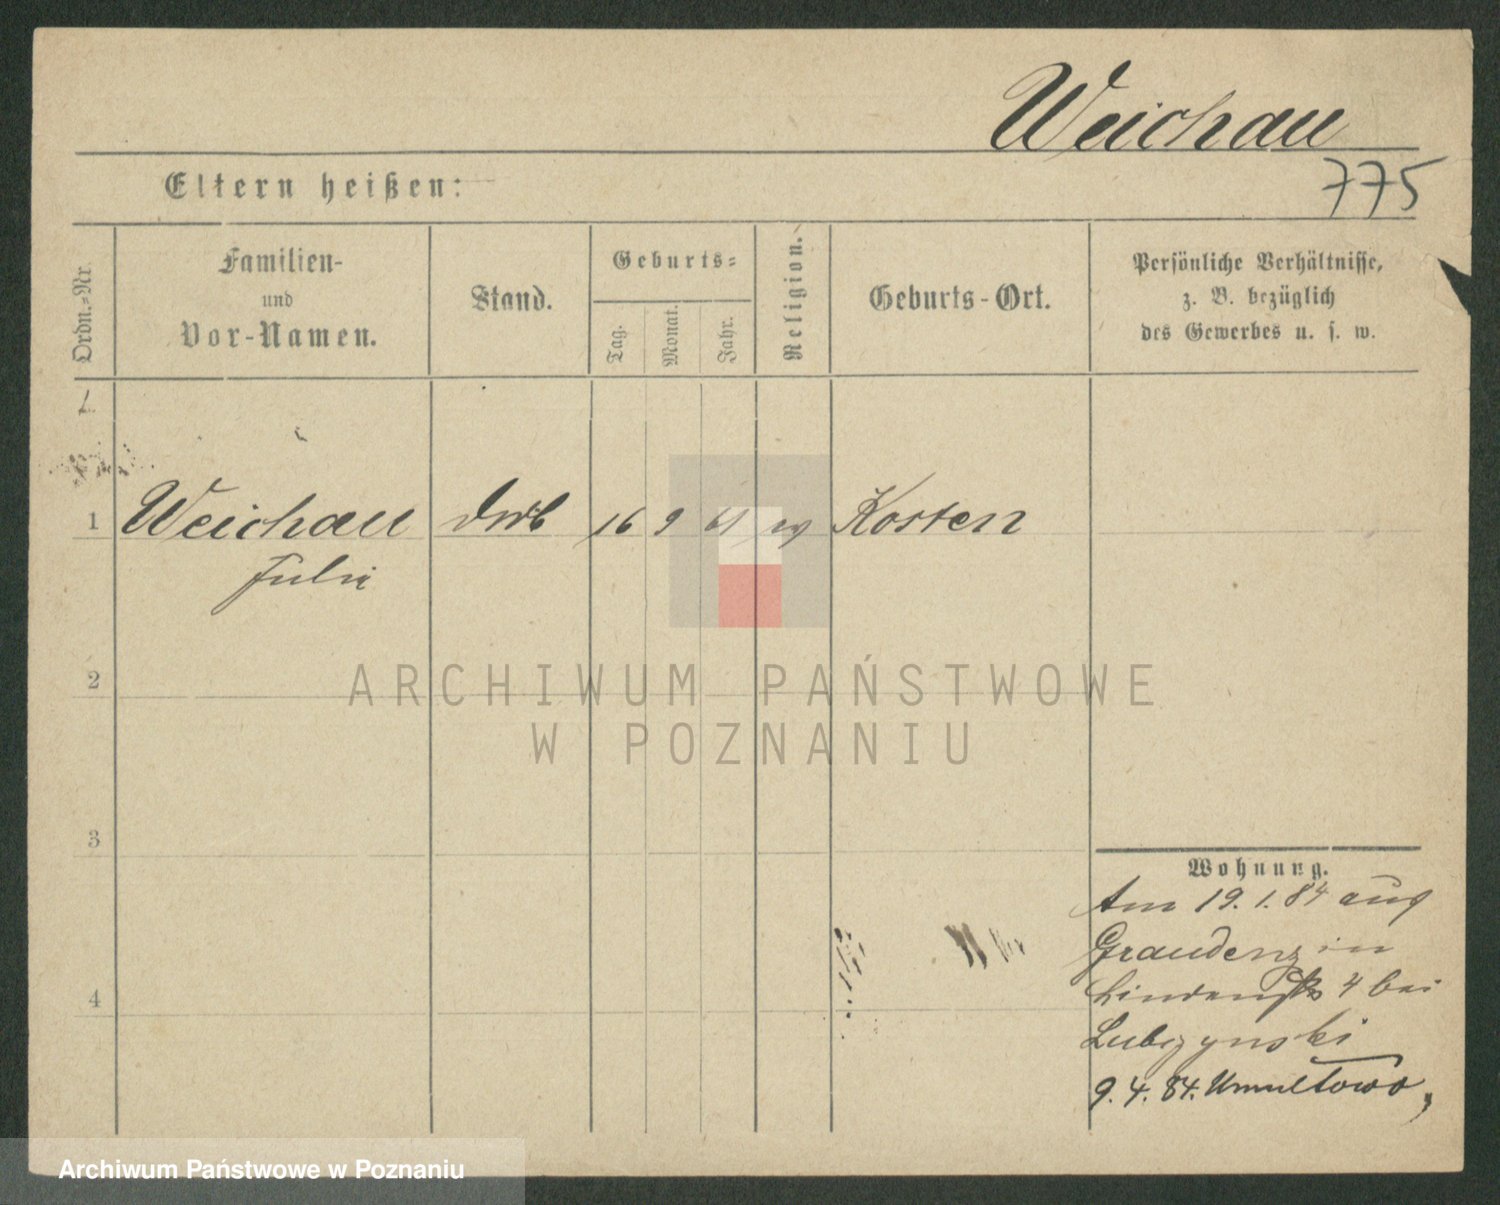 Weichau
775
Eltern heißen:
Ordn.-Nr.
Familien-
und
Vor-Namen.
Stand.
Geburts-
Tag.
Monat.
Jahr.
Religion.
Geburts-Ort.
Persönliche Verhältnisse,
z. B. bezüglich
des Gewerbes u. s. w.
1
1 Weichau 16 9 Kosten
Julie
2
3
4
Wohnung.
Am 19. 1. 84 aus
Graudenz in
Lindenstr 4 bei
Lubczynski
9. 4. 84. Umultowo,
ARCHIWUM PAŃSTWOWE
W POZNANIU
Archiwum Państwowe w Poznaniu